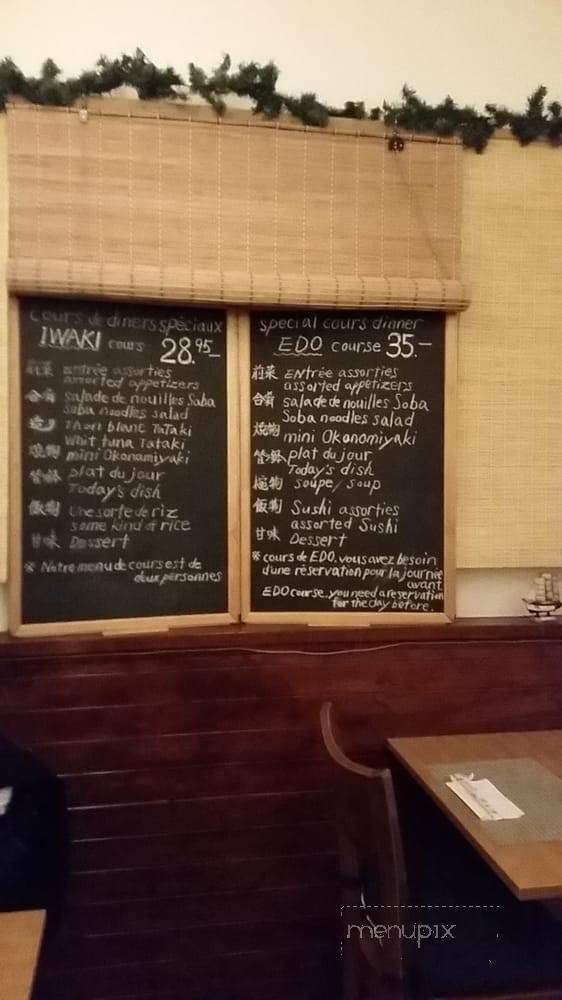 cours de diners spéciaux
IWAKI cours 28.95
前菜 entrée assorties
assorted appetizers
salade de nouilles Soba
suba noodles salad
Thon blanc Tataki
Whit tuna Tataki
焼物 mini Okonomiyaki
plat du jour
Today's dish
飯物 Une sorte de riz
some kind of rice
甘味 Dessert
※ Notre menu de cours est de
deux personnes
special cours dinner
EDO course 35.-
前菜 Entrée assorties
assorted appetizers
salade de nouilles Soba
Soba noodles salad
焼物 mini Okonomiyaki
plat du jour
Today's dish
椀物 soupe/soup
飯物 Sushi assorties
assorted Sushi
甘味 Dessert
※ cours de EDO. vous avez besoin
d'une réservation pour la journée
avant.
EDO course. you need a reservation
for the day before.
menupix